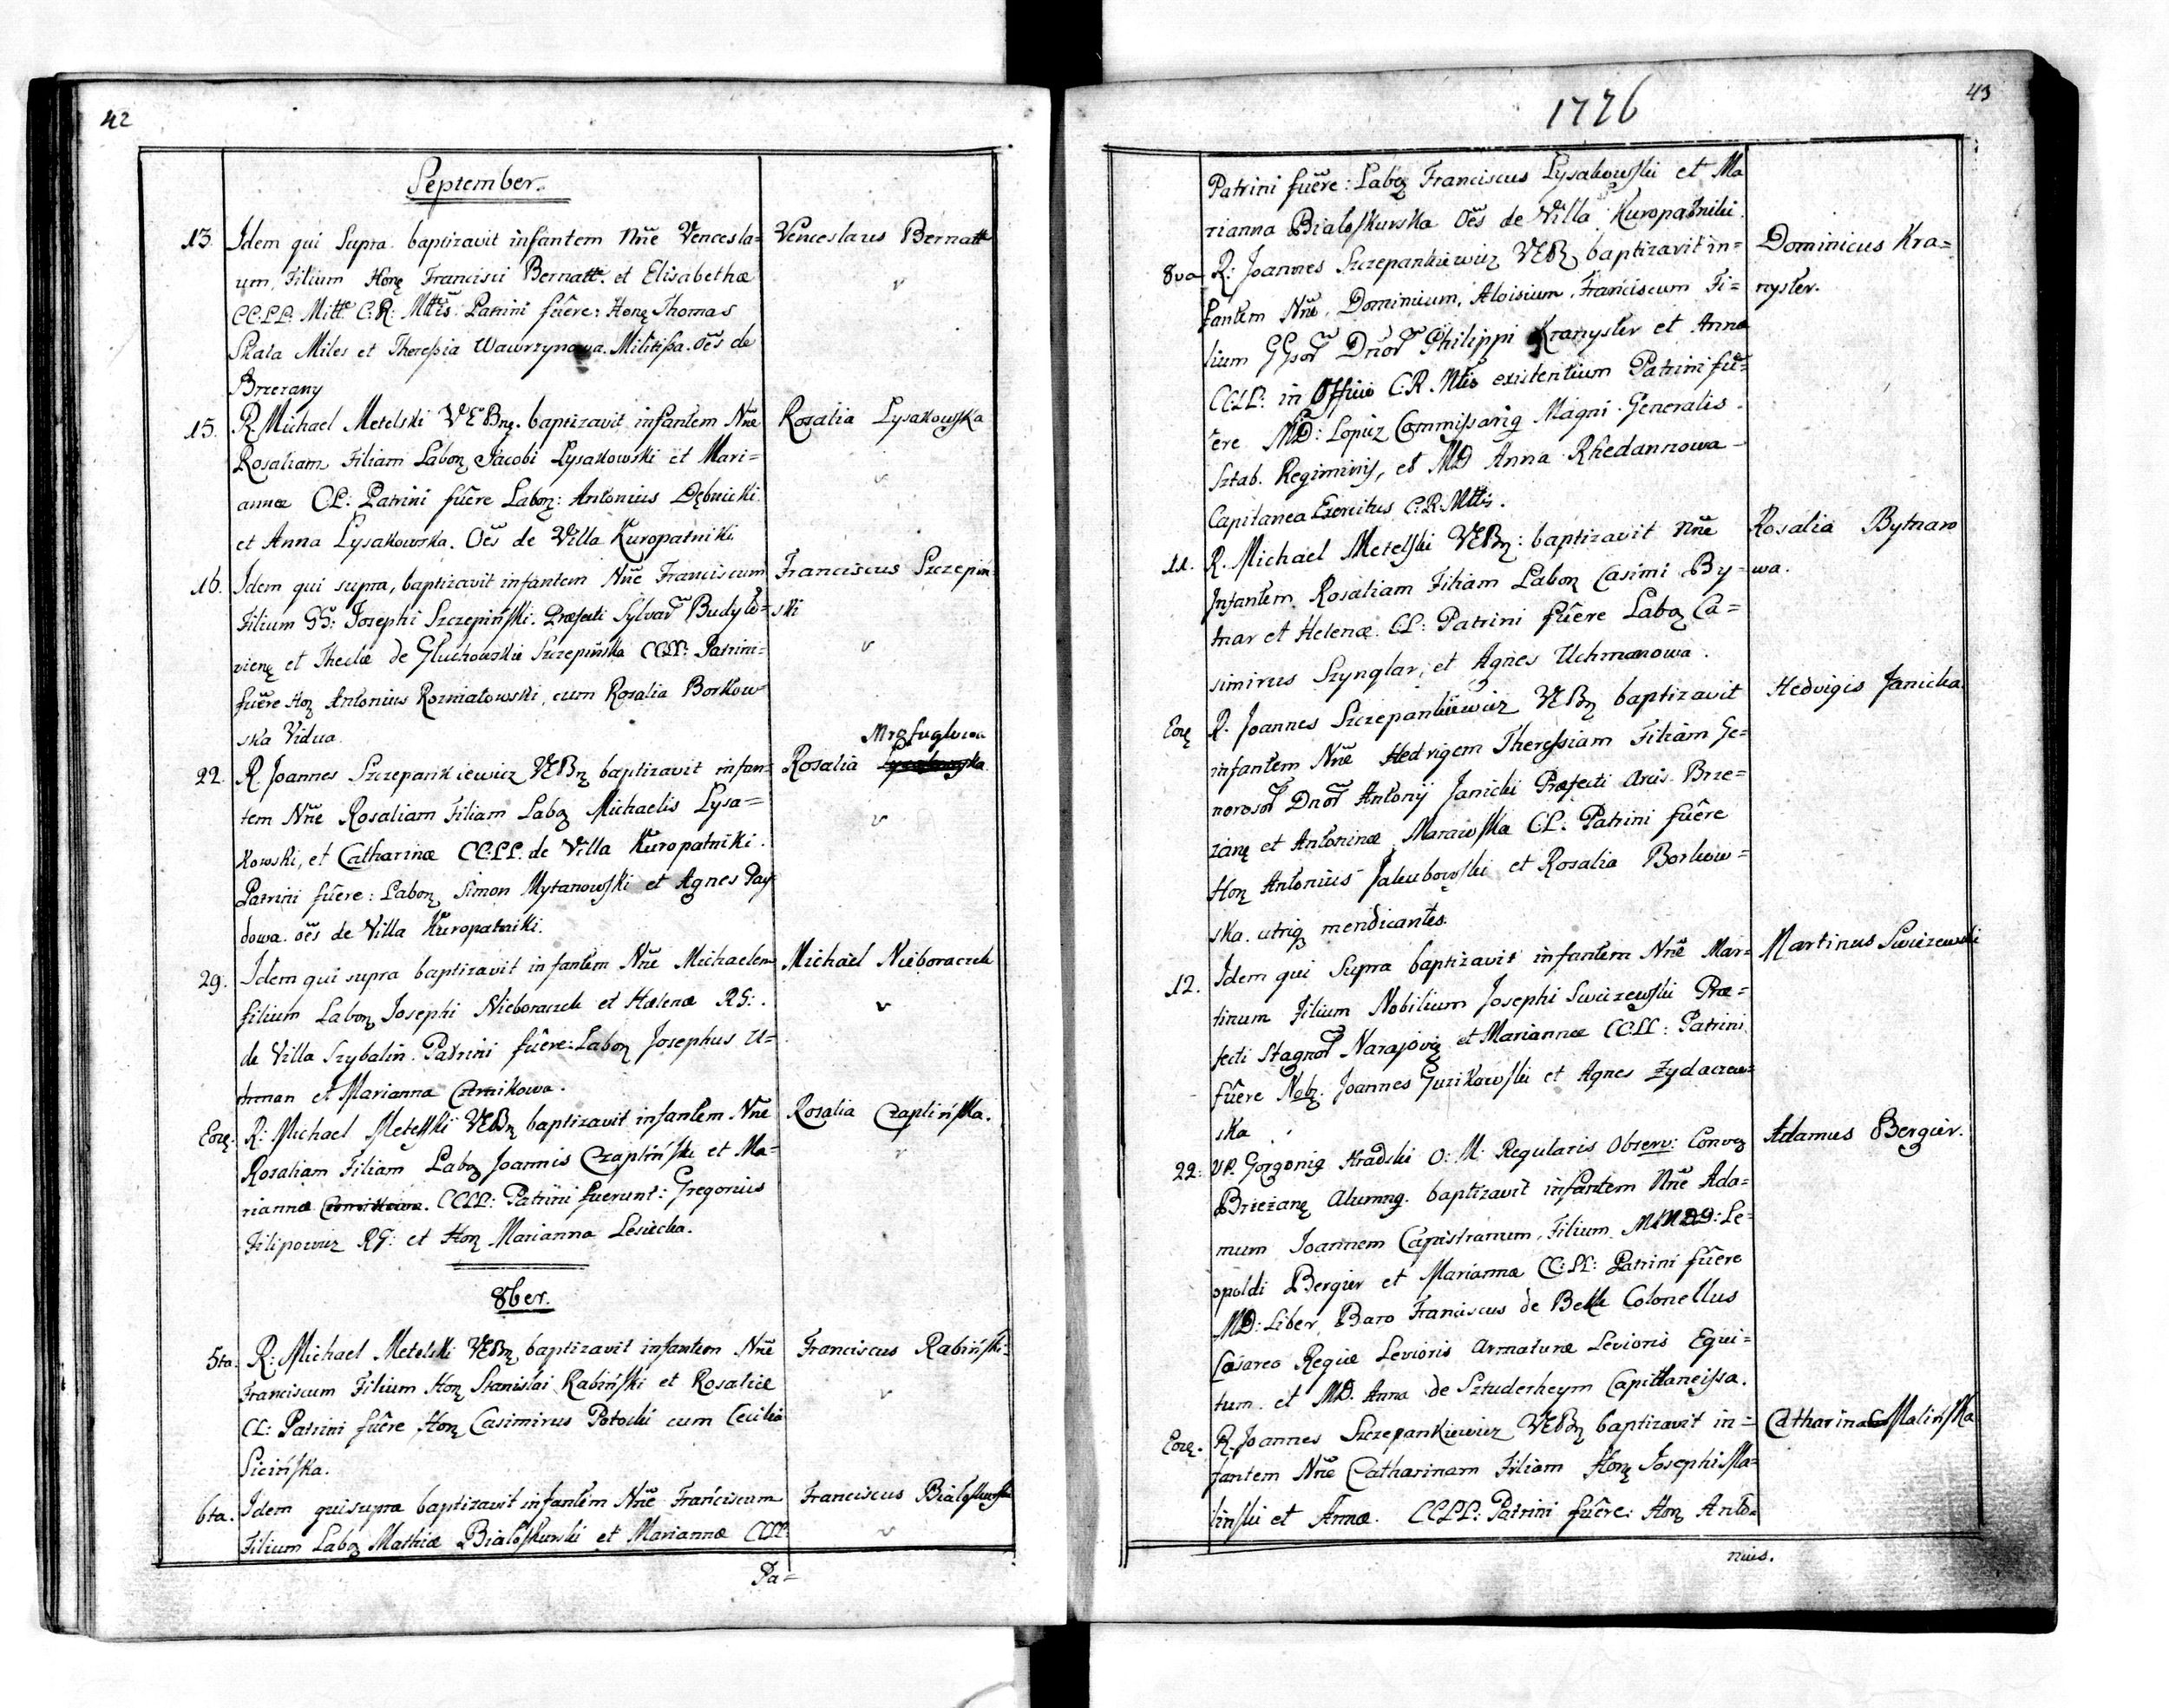 42
September.
13. Idem qui Supra baptizavit infantem Nñe Vencesla=
um, Filium Honę Francisci Bernatt et Elisabethæ
CC.LL. Mitt. C:R: Mttis. Patrini fuêre: Honę Thomas
Skala Miles et Theressia Wawrzynowa. Militissa. Oe͠s de
Brzezany
Venceslaus Bernatt
v
15. R Michael Metelski VEBnę. baptizavit infantem Nñe
Rosaliam Filiam Laboꝝ Jacobi Lysakowski et Mari=
annæ CL: Patrini fuêre Laboꝝ: Antonius Dębnicki
et Anna Lysakowska. Oe͠s de Villa Kuropatniki
Rosalia Lysakowska
v
16. Idem qui supra, baptizavit infantem Nñe Franciscum
Filium GG: Josephi Szczepiński. Præfecti Sylvar Budyło=
vienę et Theclæ de Głuchowskie Szczepińska CCLL: Patrini=
fuêre Hoꝝ Antonius Rozniatowski, cum Rosalia Borkow=
ska Vidua.
Franciscus Szczepiń
ski
v
22. R. Joannes Szczepankiewicz VEBꝝ baptizavit infan=
tem Nñe Rosaliam Filiam Laboꝝ Michaelis Lysa=
kowski, et Catharinæ CC:LL: de Villa Kuropatniki.
Patrini fuêre: Laboꝝ Simon Mytanowski et Agnes Pay
dowa. oe͠s de Villa Kuropatniki.
Rosalia
v
29. Idem qui supra baptizavit infantem Nñe Michaelem
filium Laboꝝ Josephi Nieboraczek et Hælenæ RG:.
de Villa Szybalin. Patrini fuêre: Laboꝝ Josephus U=
hman et Marianna Czernikowa.
Michaël Nieboraczek
v
Eoᵭ. R: Michael Metelski VEBꝝ baptizavit infantem Nñe
Rosaliam Filiam Laboꝝ Joannis Czapliński et Ma=
riannæ CCLL: Patrini fuerunt: Gregorius
Filipowicz RG: et Hoꝝ Marianna Lesiecka.
Rosalia Czaplińska.
v
8ber.
5ta. R: Michael Metelski VEBꝝ baptizavit infantem Nñe
Franciscum Filium Hoꝝ Stanislai Rabiński et Rosaliæ
CL: Patrini fuêre Hoꝝ Casimirus Potocki cum Cecilia
Sicińska.
Franciscus Rabiński=
v
6ta. Idem qui supra baptizavit infantem Nñe Franciscum
Filium Laboꝝ Mathiæ Białoskurski et Mariannæ CCLL:
Franciscus Białoskurski
v
Pa=
1776
43
Patrini fuêre: Laboꝝ Franciscus Lysakowski et Ma
rianna Białoskurska Oe͠s de Villa Kuropatniki.
8va R: Joannes Szczepankiewicz VEBꝝ baptizavit in=
fantem Nñe. Dominicum, Aloisium, Franciscum Fi=
lium GGsor Dnor Philippi Kranyster et Annæ
CCLL: in Officio C.R. Mtis existentium Patrini fu=
êre MD: Lopuz Commissarig Magni Generalis.
Sztab. Regiminis, et MD Anna Rhedannowa
Capitanea Exercitus C:R:Mttis.
Dominicus Kra=
nyster.
11. R. Michael Metelski VEBꝝ: baptizavit Nñe
Infantem, Rosaliam Filiam Laboꝝ Casimi By=
tnar et Helenæ. CL: Patrini fuêre Laboꝝ Ca=
simirus Szynglar, et Agnes Uchmanowa.
Rosalia Bytnaro
wa.
Eoᵭ R. Joannes Szczepankiewicz VEBꝝ baptizavit
infantem Nñe Hedvigem Theressiam Filiam Ge=
nerosor Dnor Antonij Janicki Præfecti Arcis Brze=
zanę et Antoninæ Marawska CL: Patrini fuêre
Hoꝝ Antonius Jakubowski et Rosalia Borkow=
ska. utriq̃ mendicantes.
Hedvigis Janicka
12. Idem qui Supra baptizavit infantem Nñe Mar=
tinum Filium Nobilium Josephi Swiezewski Præ=
fecti Stagnor Narajovię et Mariannæ CCLL: Patrini
fuêre Nobꝝ. Joannes Guzikowski et Agnes Zydaczew=
ska
Martinus Swiezewski
22. VP. Gorgonig Hradski O: M: Regularis Observ: Convꝝ
Brzezanę Alumng. baptizavit infantem Nñe Ada=
mum Joannem Capistranum, Filium MMDD: Le=
opoldi Bergier et Mariannæ CC:LL: Patrini fuêre
MD: Liber Baro Franciscus de Bekk Colonellus
Cæsareo Regiæ Levioris Armaturæ Levioris Equi=
tum. et MD. Anna de Sztuderheym Capittaneissa.
Adamus Bergier.
Eoᵭ. R. Joannes Szczepankiewicz VEBꝝ baptizavit in=
fantem Nñe Catharinam Filiam Hoꝝ Josephi Ma=
linski et Annæ. CCLL: Patrini fuêre: Hoꝝ Anto=
Catharina Malińska
nius.